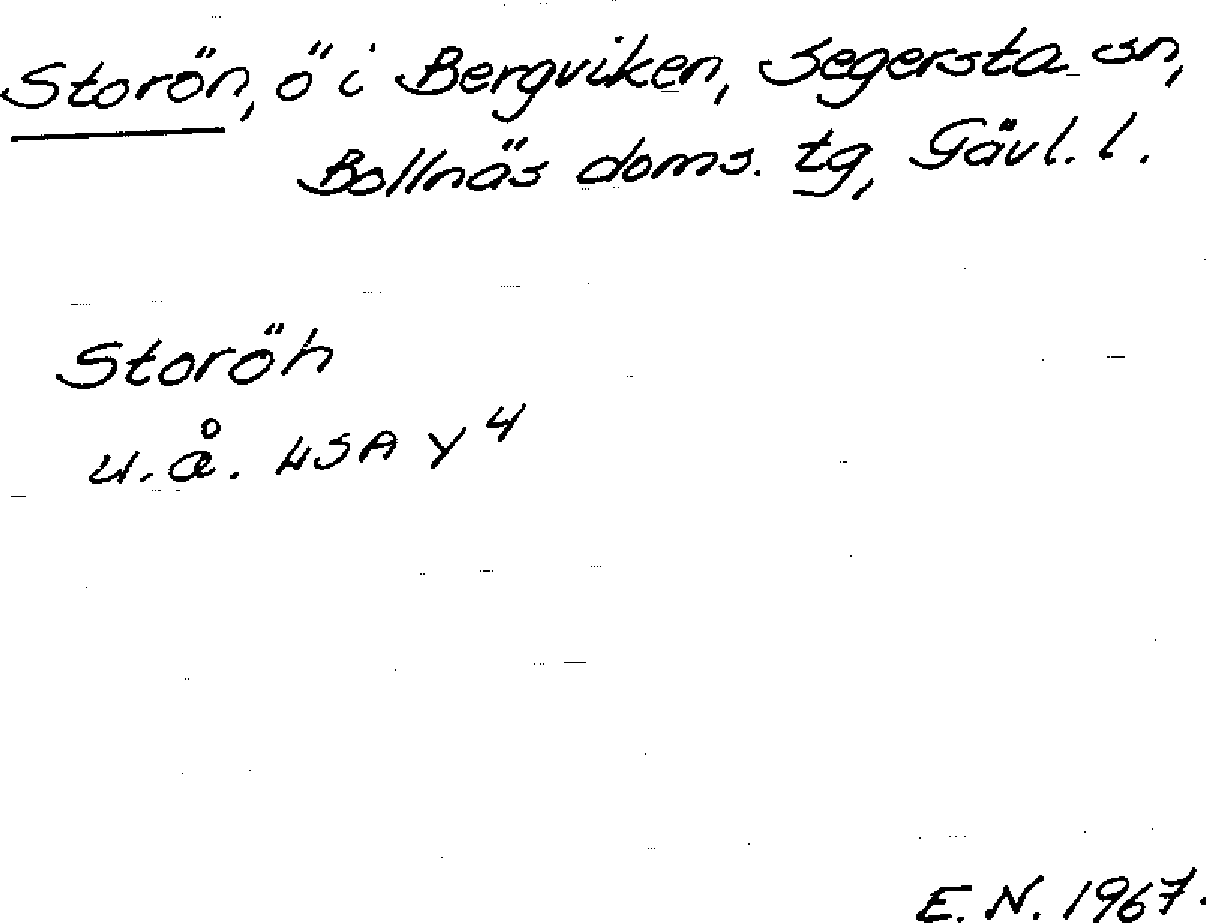 Storön, ö i Bergviken, Segersta sn,
Bollnäs doms. tg, Gävl. l.
Storöh
u. å. LSA Y 4
E. N. 1967.